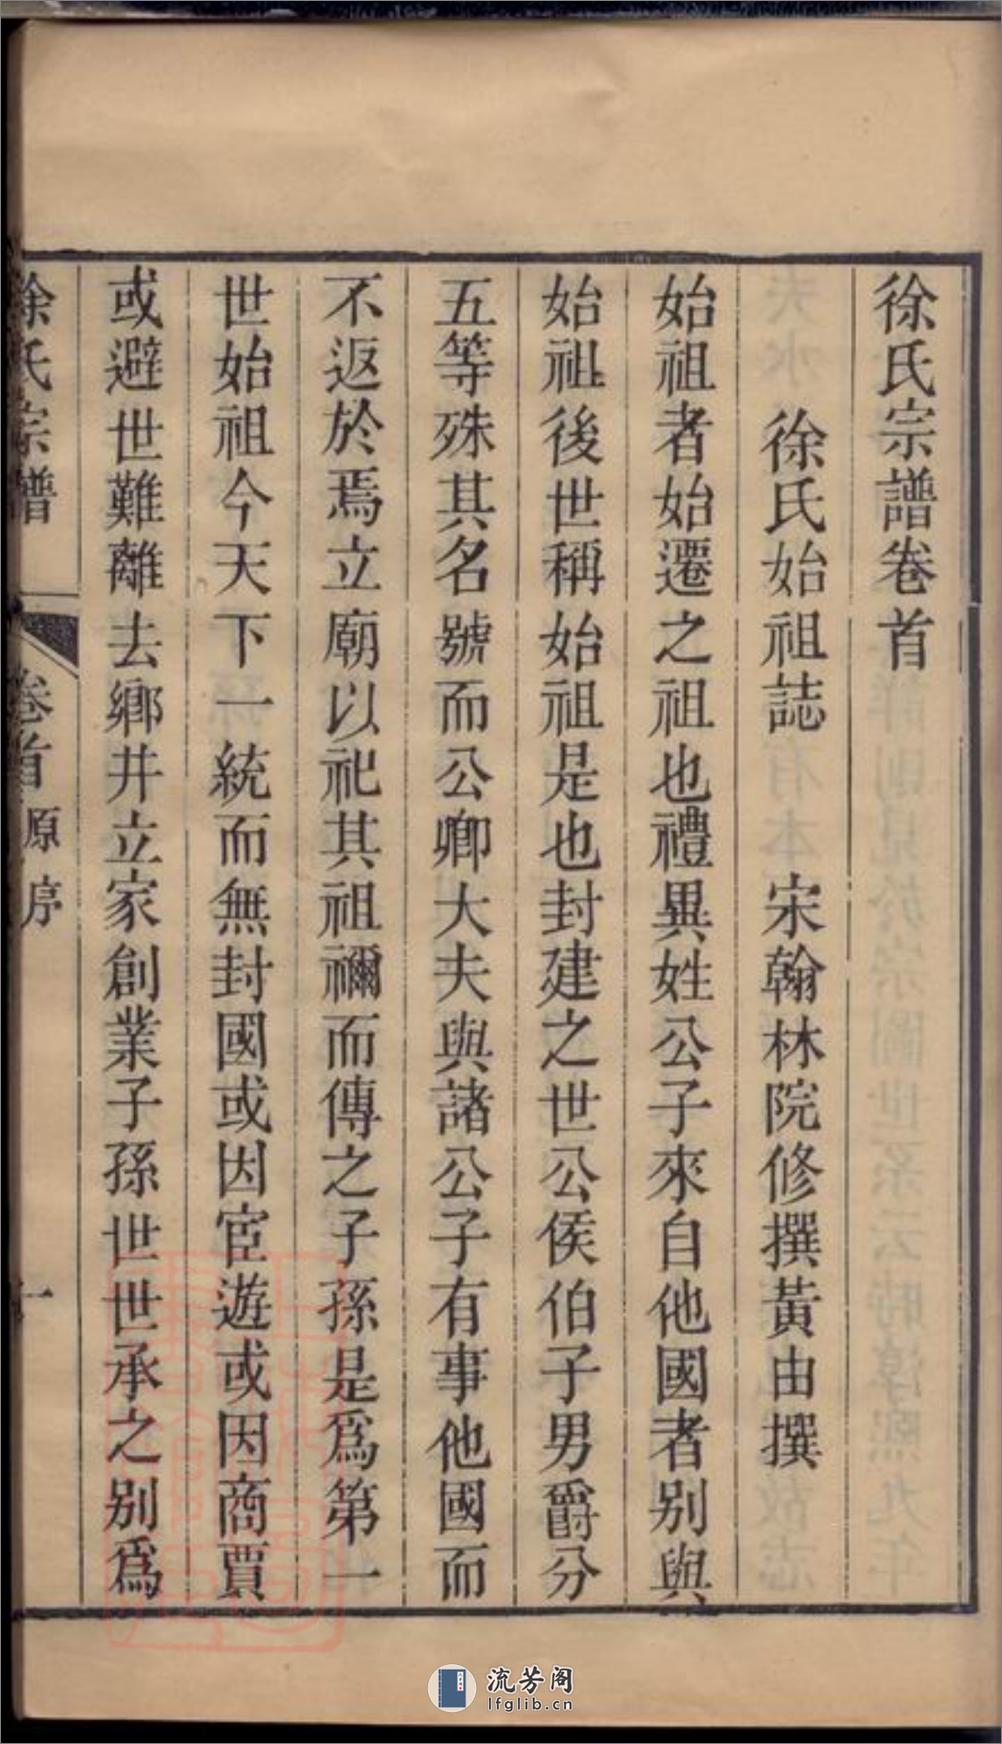 徐氏宗譜卷首
徐氏始祖誌 宋翰林院修撰黃由撰
始祖者始遷之祖也禮異姓公子來自他國者別與
始祖後世稱始祖是也封建之世公侯伯子男爵分
五等殊其名號而公卿大夫與諸公子有事他國而
不返於焉立廟以祀其祖禰而傳之子孫是爲第一
世始祖今天下一統而無封國或因宦遊或因商賈
或避世難離去鄉井立家創業子孫世世承之別爲
徐氏宗譜 卷首 原序 一
流芳阁
lfglib.cn